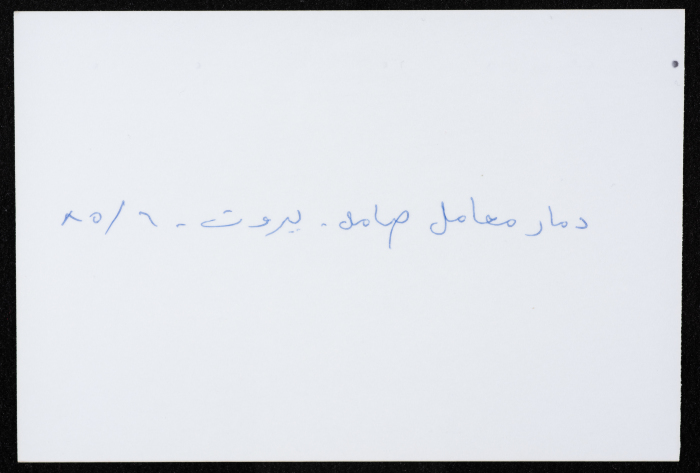 دمار معامل صامد - بيروت - ٦/٨٥